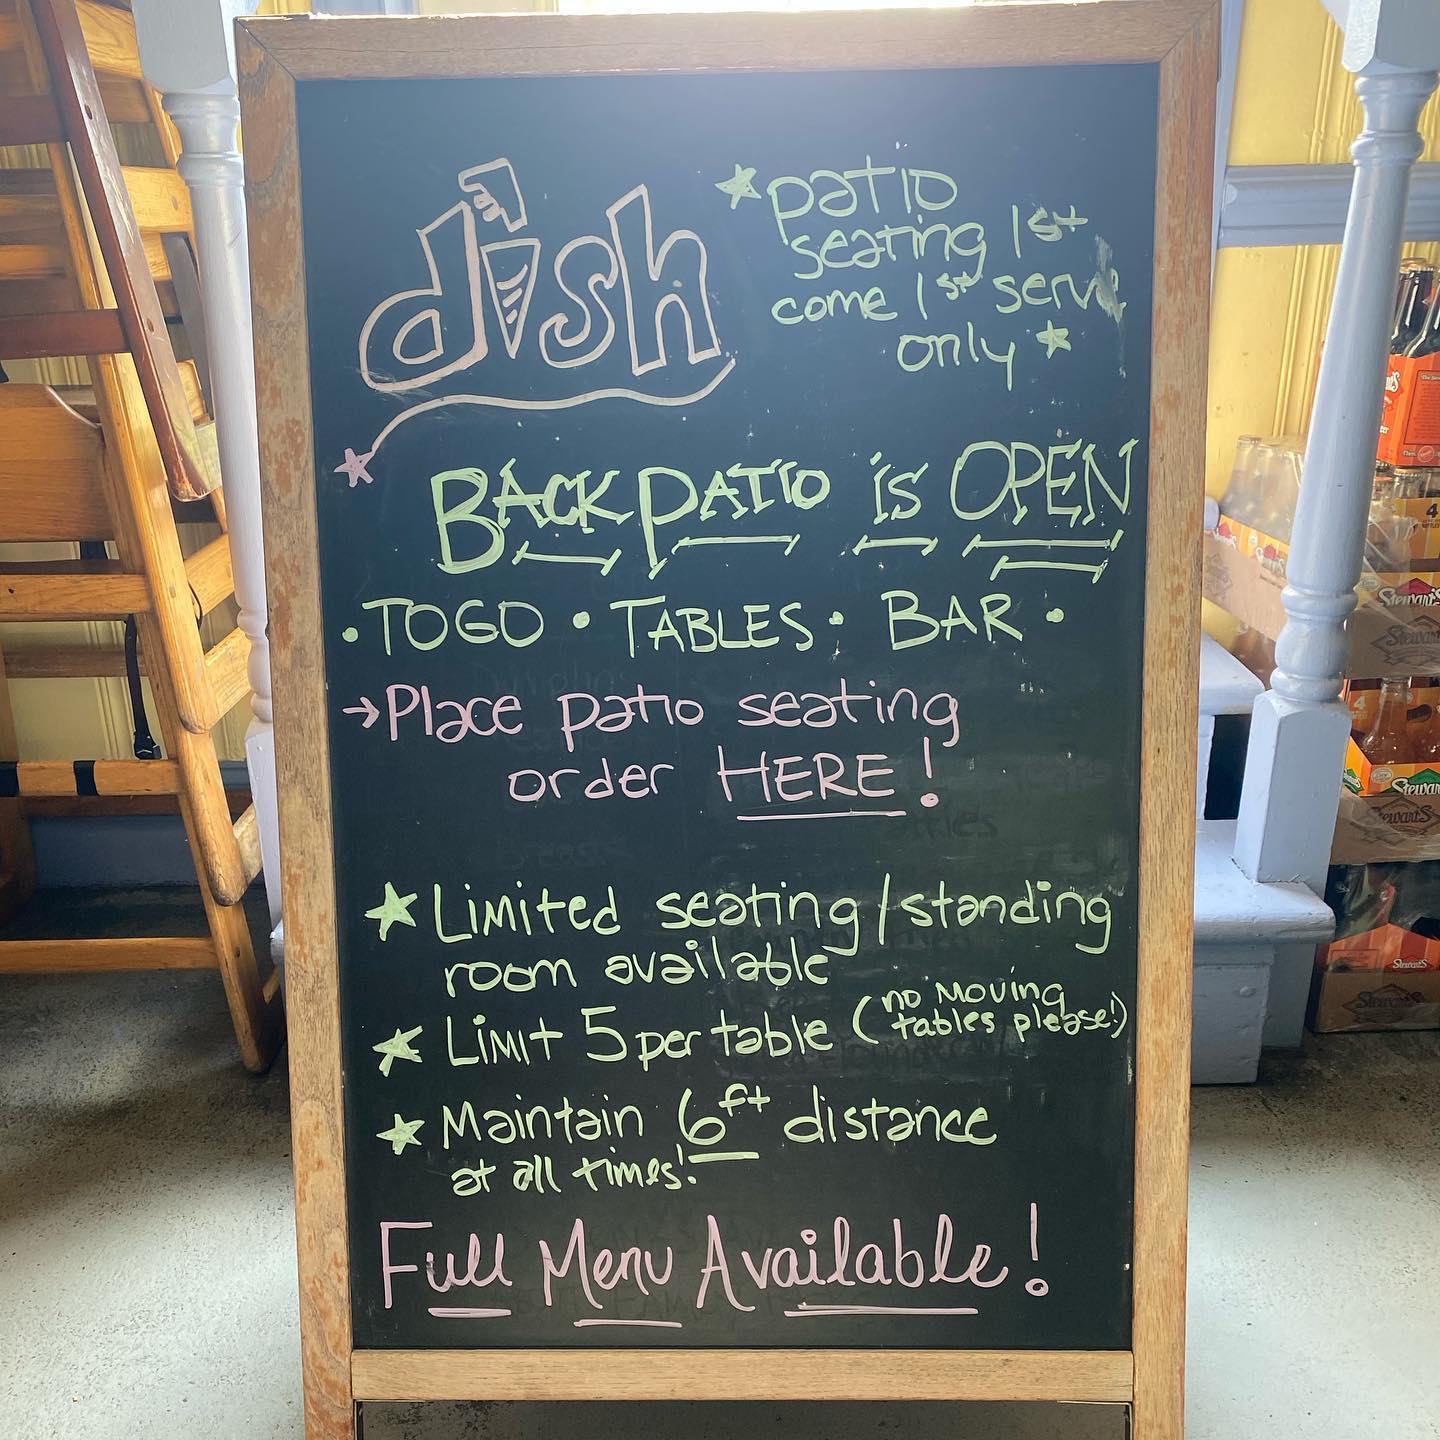 dish
patio
seating 1st
come 1st serve
only
BACK PATIO is OPEN
• TOGO • TABLES • BAR •
→ Place patio seating
order HERE!
Limited seating/standing
room available
Limit 5 per table (no moving
tables please!)
Maintain 6ft distance
at all times!
Full Menu Available!
Stewart's
Stewart's
Stewart's
Stewart's
Stewart's